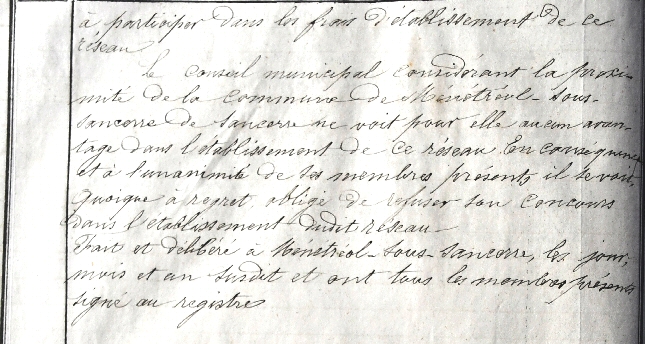 à participer dans les frais d'établissement de ce
réseau
Le Conseil municipal considérant la proxi-
mité de la commune de Ménétréol-sous-
Sancerre de Sancerre ne voit pour elle aucun avan-
tage dans l'établissement de ce réseau En conséquence
et à l'unanimité de ses membres présents il se voit,
quoique à regret, obligé de refuser son concours
dans l'établissement dudit réseau.
Fait et délibéré à Ménétréol-sous-Sancerre, les jour,
mois et an susdit et ont tous les membres présents
signé au registre